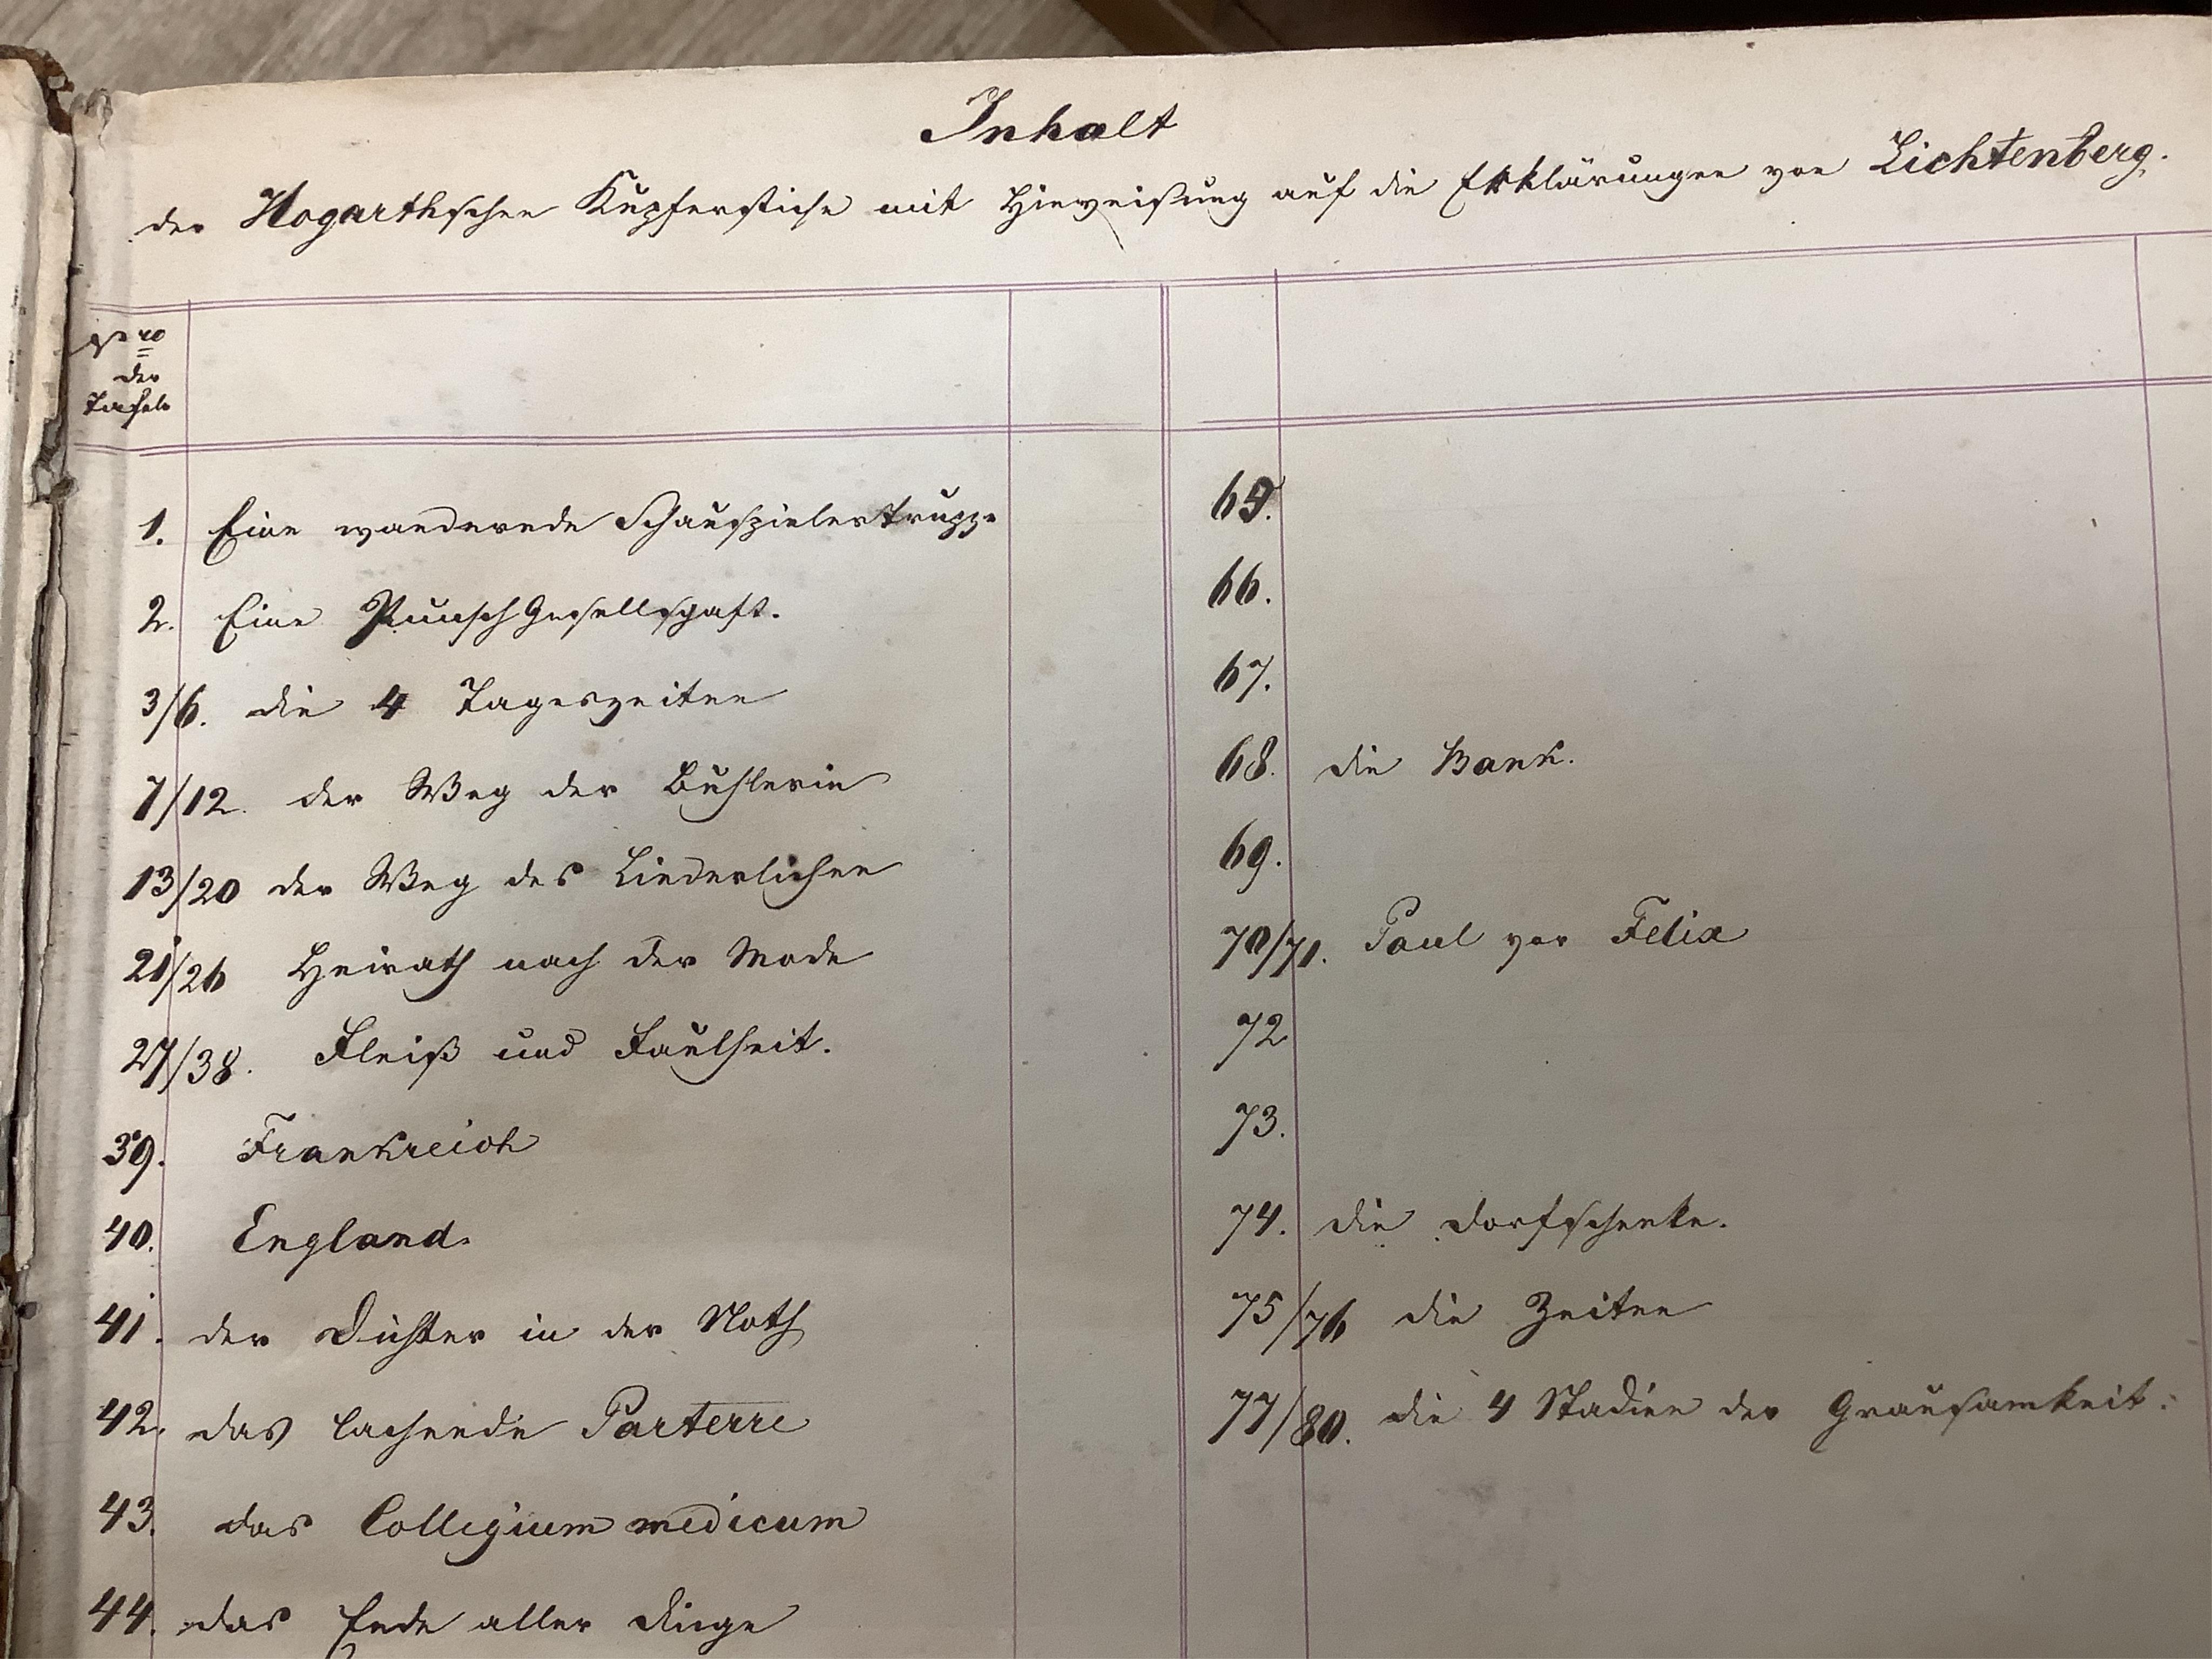 Inhalt
der Hogarthschen Kupferstiche mit Hinweisung auf die Erklärungen von Lichtenberg.
Nro
der
Tafeln
1. Eine wandernde Schauspielertruppe
2. Eine Punsch Gesellschaft.
3/6. die 4 Tageszeiten
7/12. der Weg der Buhlerin
13/20 der Weg des Liederlichen
21/26 Heirath nach der Mode
27/38. Fleiß und Faulheit.
39. Frankreich
40. England.
41. der Dichter in der Noth
42. das lachende Parterre
43. das Collegium medicum
44. das Ende aller Dinge
65.
66.
67.
68. die Bank.
69.
70/71. Paul vor Felix
72
73.
74. die Dorfschenke.
75/76 die Zeiten
77/80. die 4 Stadien der Grausamkeit.